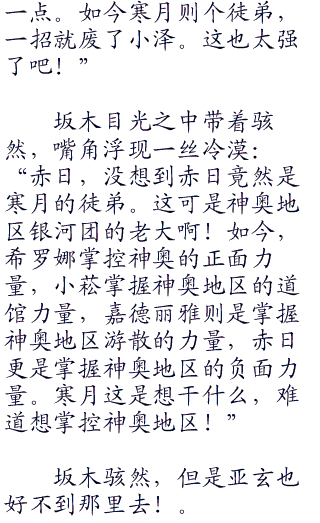 一点。如今寒月则个徒弟，
一招就废了小泽。这也太强
了吧！”
坂木目光之中带着骇
然，嘴角浮现一丝冷漠：
“赤日，没想到赤日竟然是
寒月的徒弟。这可是神奥地
区银河团的老大啊！如今，
希罗娜掌控神奥的正面力
量，小菘掌握神奥地区的道
馆力量，嘉德丽雅则是掌握
神奥地区游散的力量，赤日
更是掌握神奥地区的负面力
量。寒月这是想干什么，难
道想掌控神奥地区！”
坂木骇然，但是亚玄也
好不到那里去！。